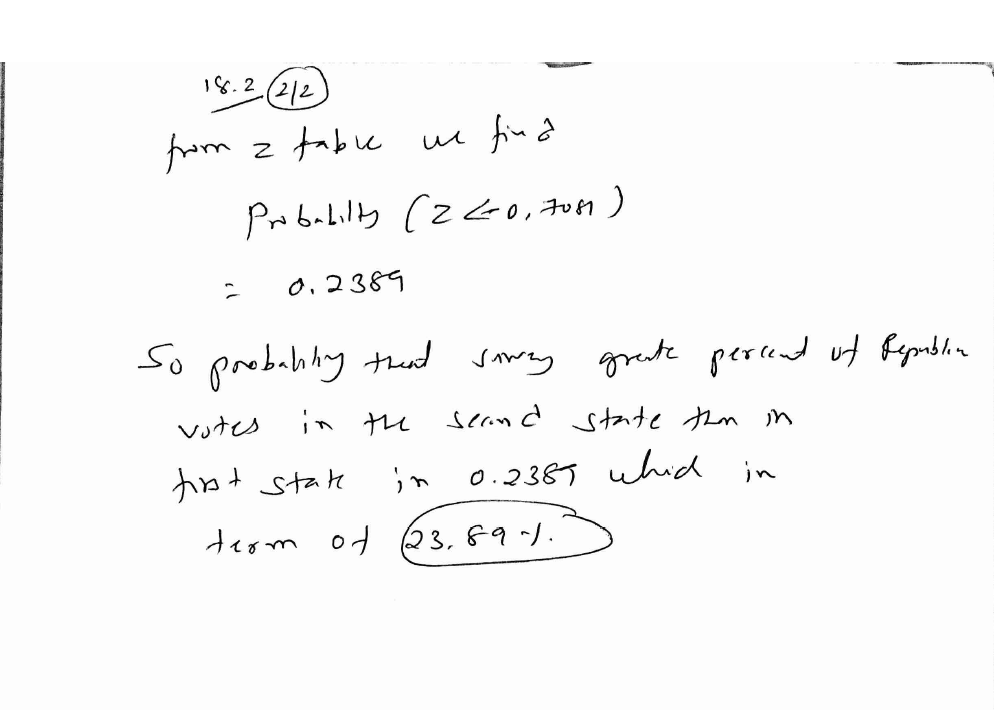 18.2 2/2
from z table we find
Probability (Z <-0.7081)
= 0.2389
So probability that survey greate percent of Republican
votes in the second state than in
first state in 0.2389 which in
term of 23.89%.